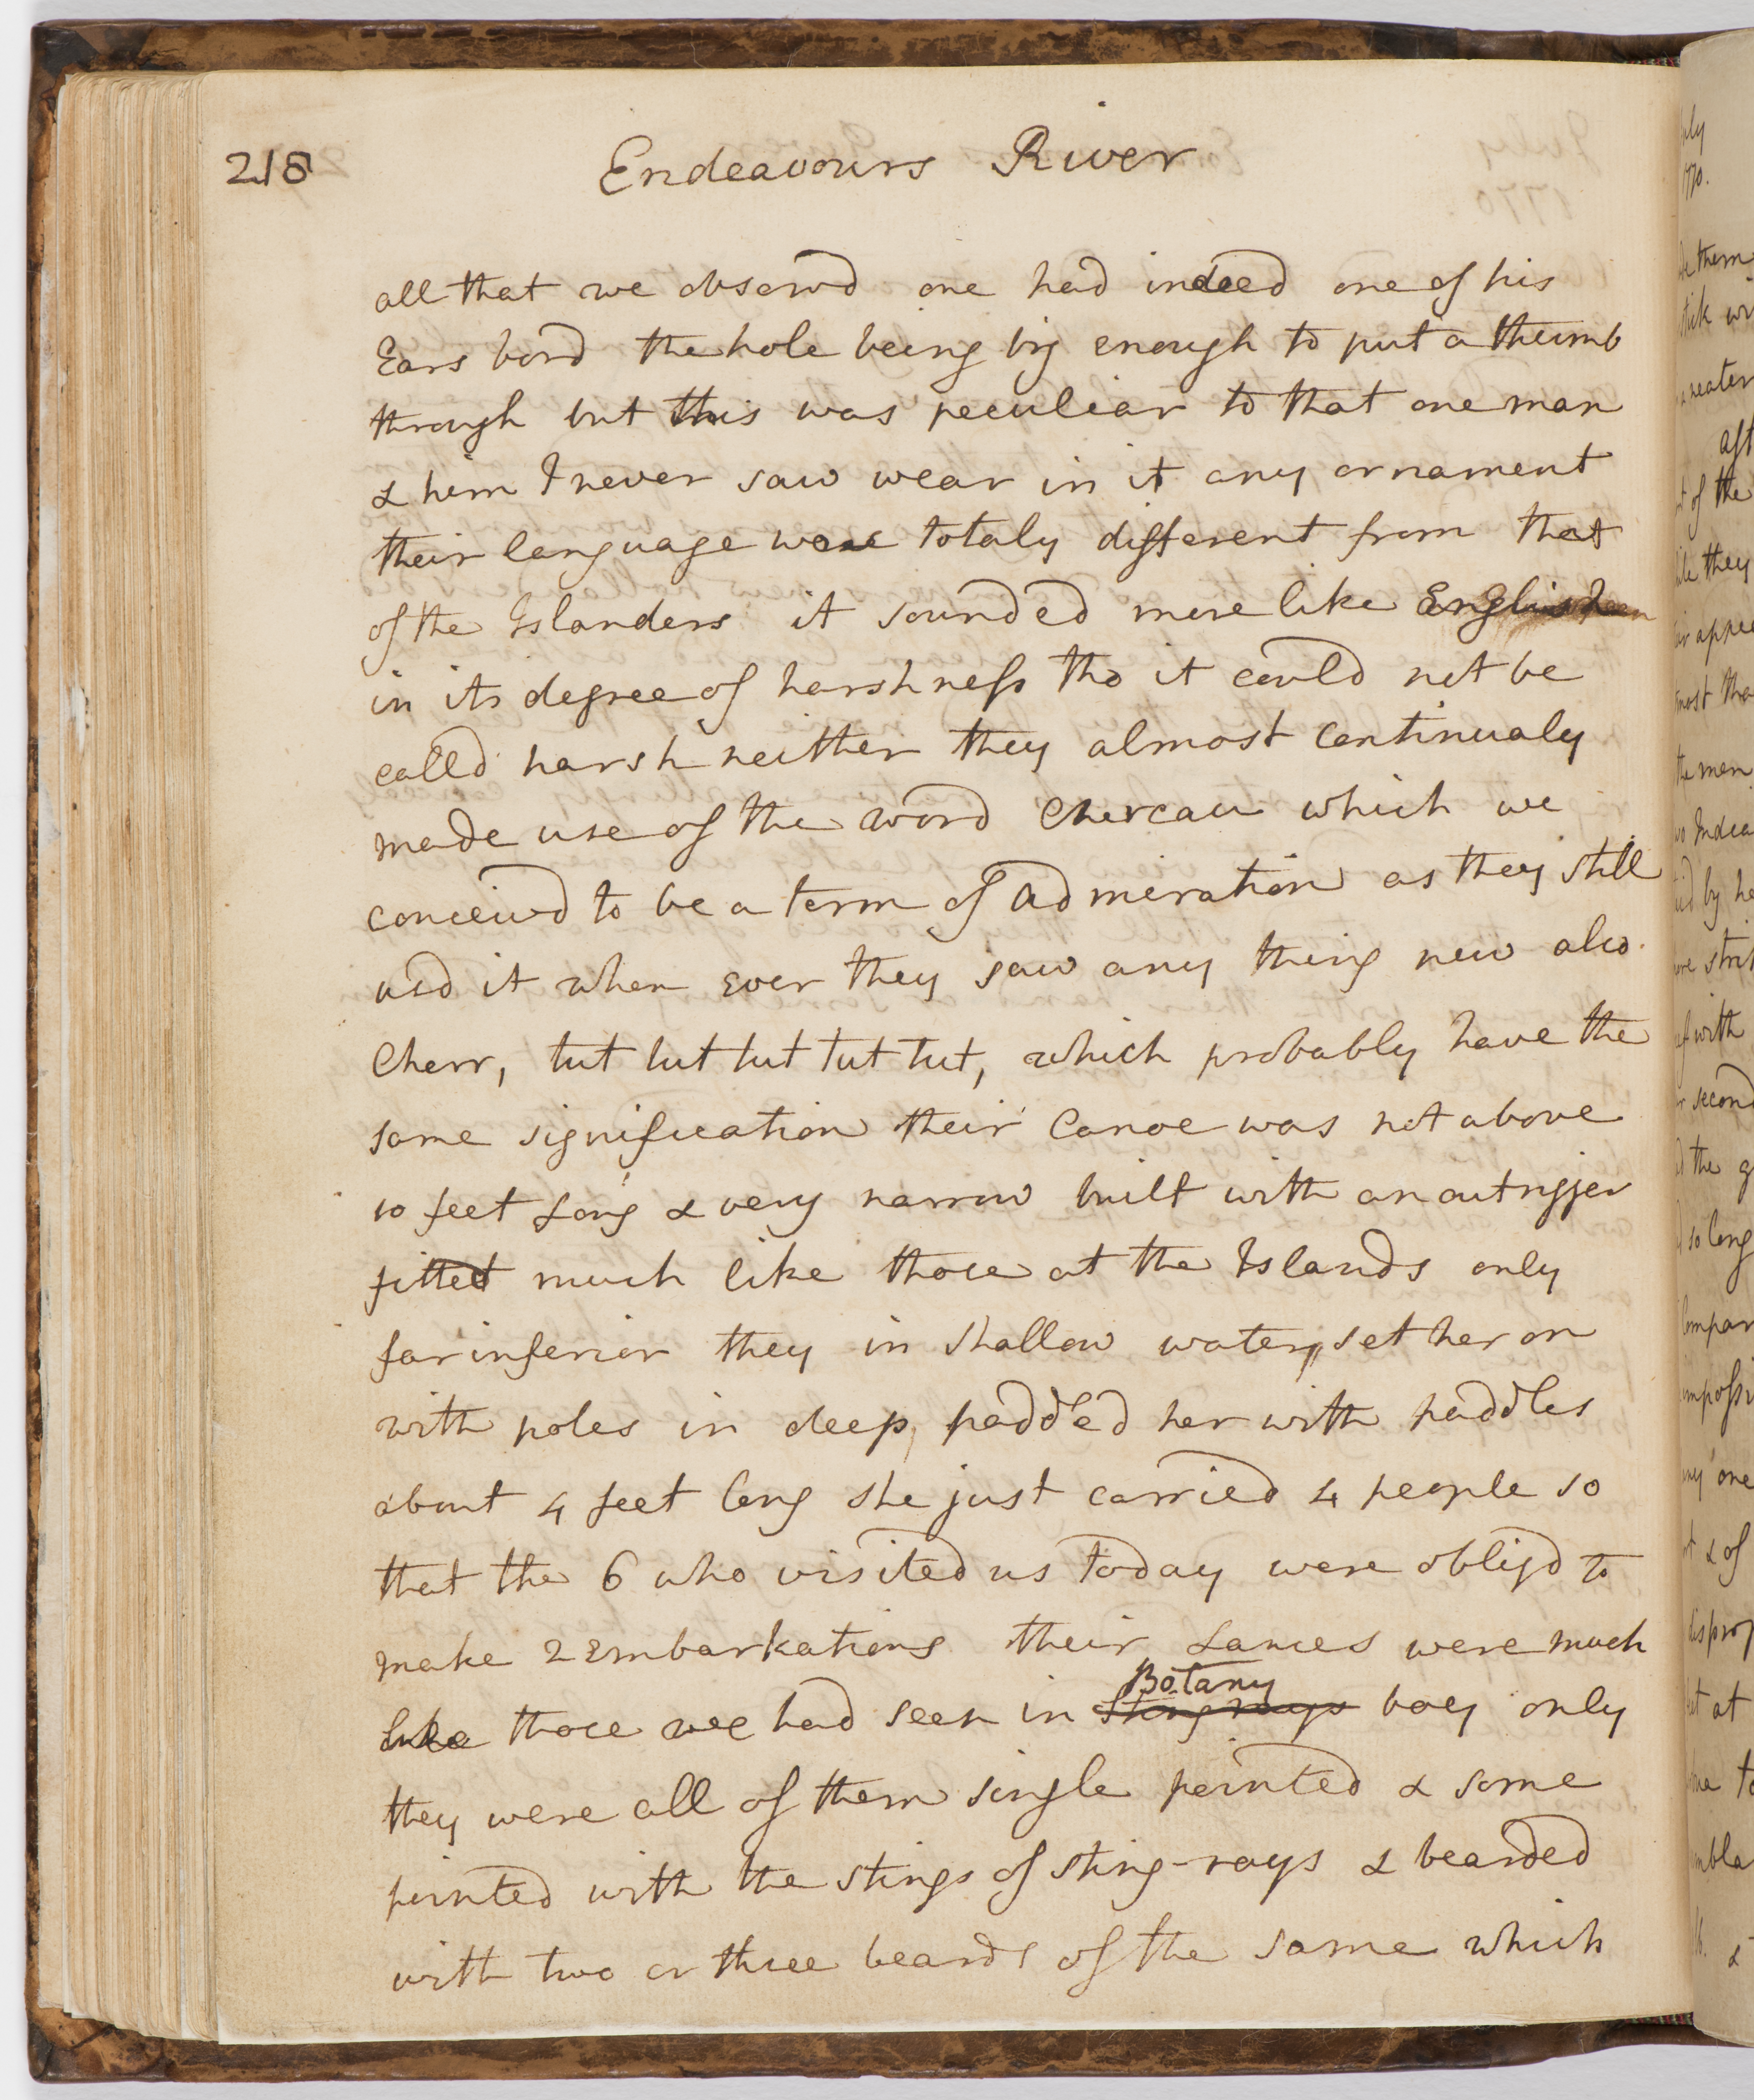 218
Endeavours River
all that we observd one had indeed one of his
Ears bord the hole being big enough to put a thumb
through but this was peculiar to that one man
& him I never saw wear in it any ornament
their language was totaly different from that
of the Islanders it sounded more like English
in its degree of harshness tho it could not be
calld harsh neither they almost continualy
made use of the word Chercau which we
conceivd to be a term of admiration as they still
usd it when ever they saw any thing new also
Cherr, tut tut tut tut tut, which probably have the
same signification their Canoe was not above
10 feet Long & very narrow built with an outrigger
fitted much like those at the Islands only
far inferior they in shallow waters set her on
with poles in deep, paddled her with paddles
about 4 feet long she just carried 4 people so
that the 6 who visited us today were obligd to
make 2 Embarkations their Lances were much
Botany
like those we had seen in Sting rays bay only
they were all of them single pointed & some
pointed with the stings of sting-rays & bearded
with two or three beards of the same which